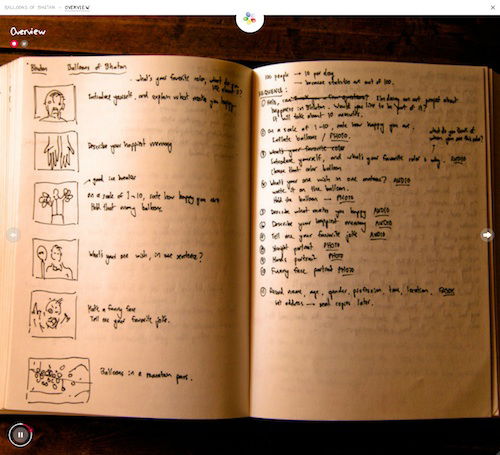 BALLOONS OF BHUTAN — OVERVIEW
Overview
Bhutan Balloons of Bhutan
what's your favorite color, what do you
Introduce yourself, and explain what makes you happy.
Describe your happiest memory
good ice breaker
on a scale of 1-10, rate how happy you are
that many balloons
What's your one wish, in one sentence?
Make a funny face
Tell me your favorite joke.
Balloons in a mountain pass.
100 people → 10 per day
→ because statistics are out of 100.
SEQUENCE:
① Hello, I'm doing an art project about
happiness in Bhutan. Would you like to be part of it?
It'll take about 10 minutes.
② On a scale of 1-10, rate how happy you are.
Inflate balloons / PHOTO
what do you think of
when you see this color?
③ What's your favorite color?
Introduce yourself, and what's your favorite color & why. AUDIO
Choose that color balloon
④ What's your one wish in one sentence? AUDIO
write it on the balloon.
Hold the balloon → PHOTO
⑤ Describe what makes you happy AUDIO
⑥ Describe your happiest memory AUDIO
⑦ Tell me your favorite joke AUDIO
⑧ Straight portrait PHOTO
⑨ Hands portrait PHOTO
⑩ Funny face portrait PHOTO
⑪ Record name, age, gender, profession, time, location.
address → send copies later.